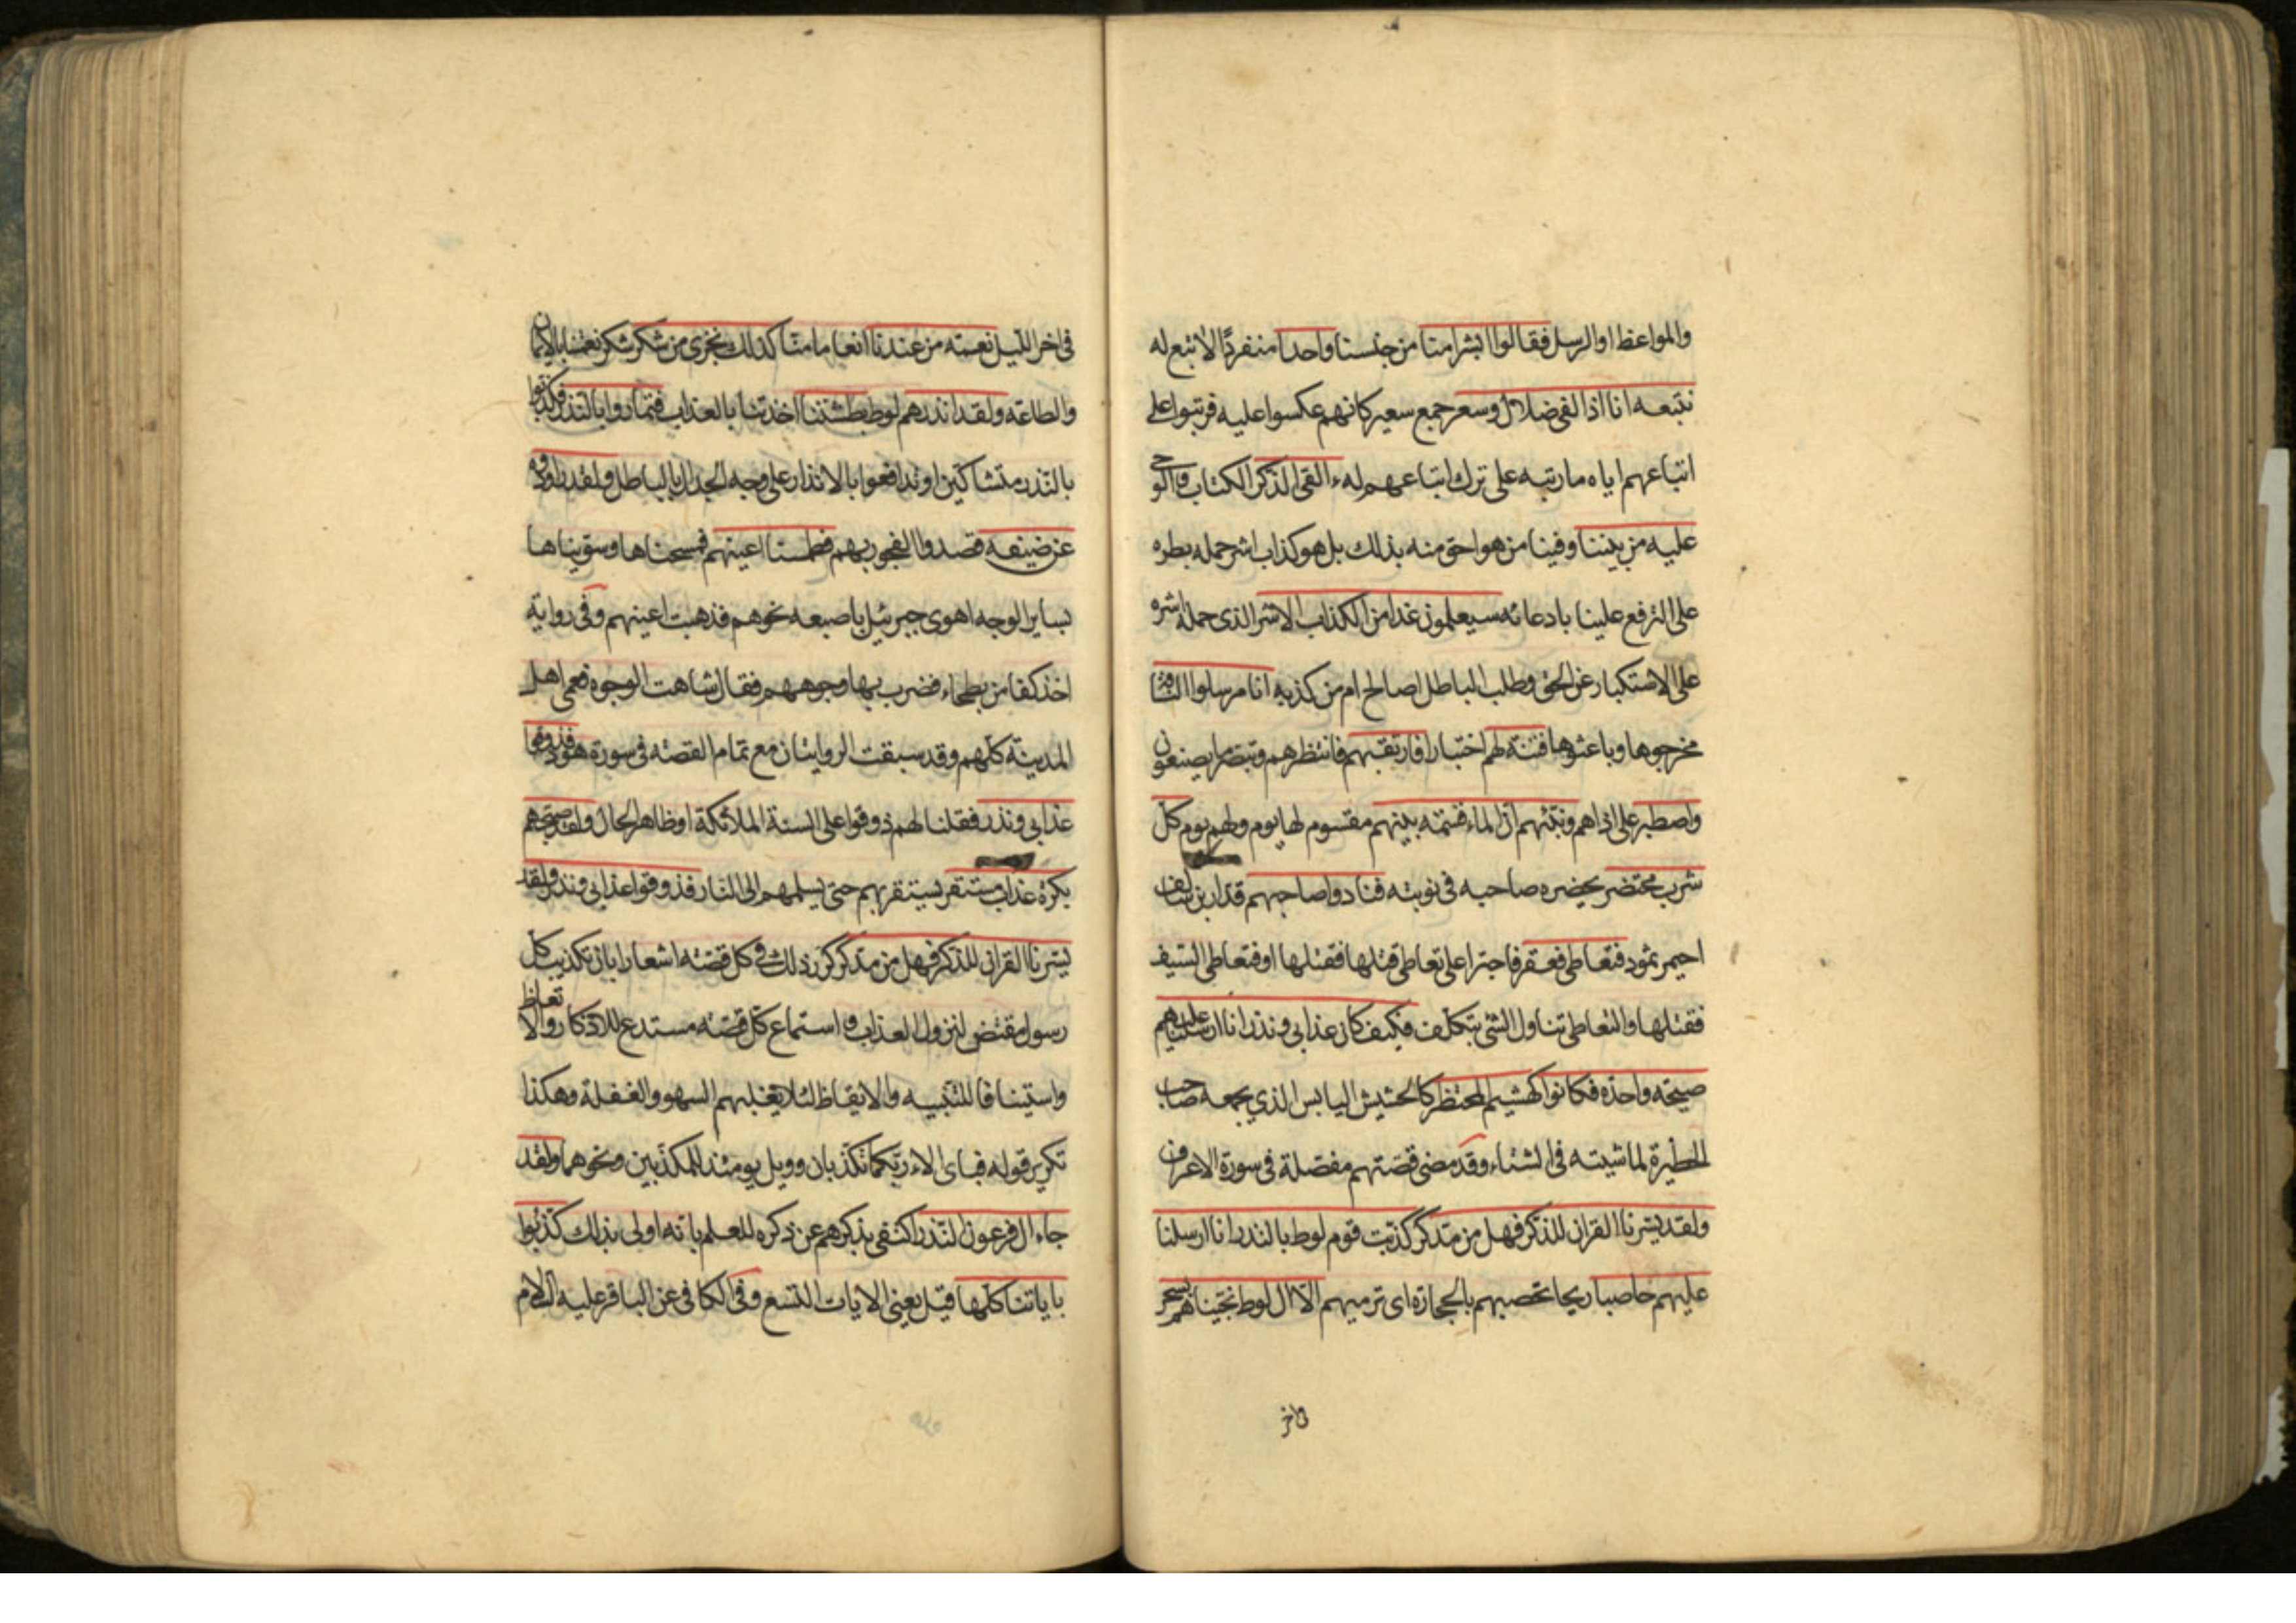 والمواعظ او الرسل فقالوا ابشرا منا من جنسنا واحدا منفردًا لا تبع له
نتبعه انا اذا لفى ضلال وسعر جمع سعير كانهم عكسوا عليه فرتبوا على
اتباعهم اياه ما رتبه على ترك اتباعهم له ءالقى الذكر الكتاب والوحى
عليه من بيننا وفينا من هو احق منه بذلك بل هو كذاب اشر حمله بطره
على الترفع علينا بادعائه سيعلمون غدا من الكذاب الاشر الذى حمله اشره
على الاستكبار عن الحق وطلب الباطل اصالح ام من كذبه انا مرسلوا الناقة
مخرجوها وباعثوها فتنة لهم اختبارا فارتقبهم فانتظرهم وتبصر ما يصنعون
واصطبر على اذاهم ونبئهم ان الماء قسمة بينهم مقسوم لها يوم ولهم يوم كل
شرب محتضر يحضره صاحبه فى نوبته فنادوا صاحبهم قدار بن سالف
احيمر ثمود فتعاطى فعقر فاجترا على تعاطى قتلها فقتلها او فتعاطى السيف
فقتلها والتعاطى تناول الشئ بتكلف فكيف كان عذابى ونذر انا ارسلنا عليهم
صيحة واحدة فكانوا كهشيم المحتظر كالحشيش اليابس الذي يجمعه صاحب
الحظيرة لماشيته فى الشتاء وقد مضى قصتهم مفصلة فى سورة الاعراف
ولقد يسرنا القران للذكر فهل من مدكر كذبت قوم لوط بالنذر انا ارسلنا
عليهم حاصبا ريحا تحصبهم بالحجارة اى ترميهم الا ال لوط نجيناهم بسحر
فى اخر الليل نعمة من عندنا انعاما منا كذلك نجزى من شكر شكر نعمتنا بالايمان
والطاعة ولقد انذرهم لوط بطشتنا اخذتنا بالعذاب فتماروا بالنذر فكذبوا
بالنذر متشاكين او تدافعوا بالانذار على وجه الجدال بالباطل ولقد راودوه
عن ضيفه قصدوا الفجور بهم فطمسنا اعينهم فمسحناها وسويناها
بساير الوجه اهوى جبرئيل باصبعه نحوهم فذهبت اعينهم وفى رواية
اخذ كفا من بطحاء فضرب بها وجوههم فقال شاهت الوجوه فعمى اهل
المدينة كلهم وقد سبقت الروايتان مع تمام القصة فى سورة هود فذوقوا
عذابى ونذر فقلنا لهم ذوقوا على السنة الملائكة او ظاهر الحال ولقد صبحهم
بكرة عذاب مستقر يستقر بهم حتى يسلمهم الى النار فذوقوا عذابى ونذر ولقد
يسرنا القران للذكر فهل من مدكر كرر ذلك فى كل قصة اشعارا بان تكذيب كل
رسول مقتض لنزول العذاب واستماع كل قصة مستدع للاذكار والاتعاظ
واستينافا للتنبيه والايقاظ لئلا يغلبهم السهو والغفلة وهكذا
تكرير قوله فباى الاء ربكما تكذبان وويل يومئذ للمكذبين ونحوهما ولقد
جاء ال فرعون النذر اكتفى بذكرهم عن ذكره للعلم بانه اولى بذلك كذبوا
باياتنا كلها قيل يعنى الايات التسع وفى الكافى عن الباقر عليه السلام